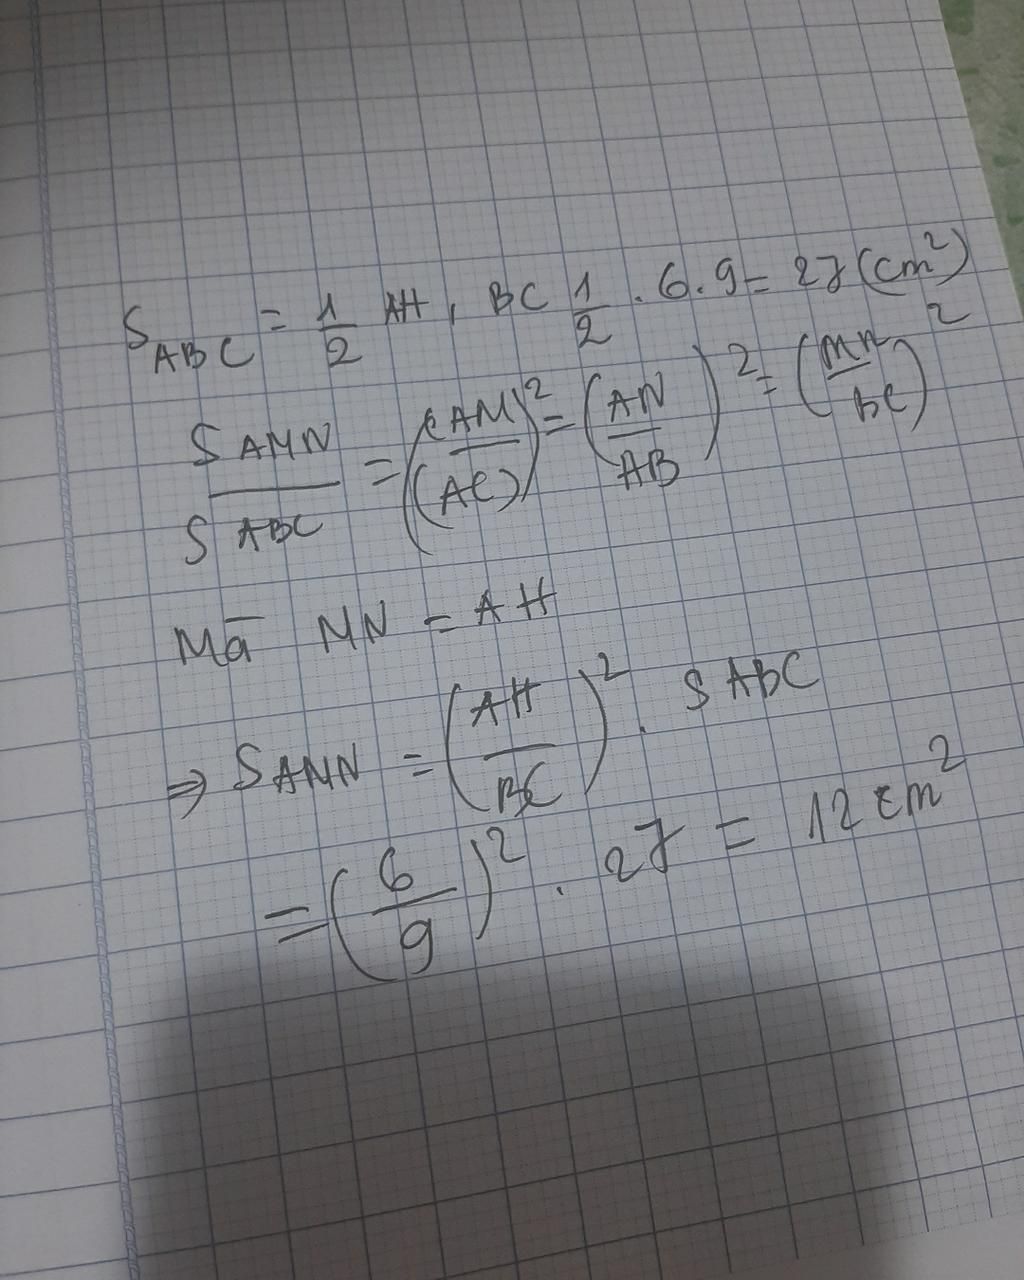 S_ABC = 1/2 AH . BC 1/2 . 6 . 9 = 27 (cm²)
S AMN / S ABC = (AM / AC)² = (AN / AB)² = (MN / BC)²
Mà MN = AH
⇒ S AMN = (AH / BC)² . S ABC
= (6 / 9)² . 27 = 12 cm²